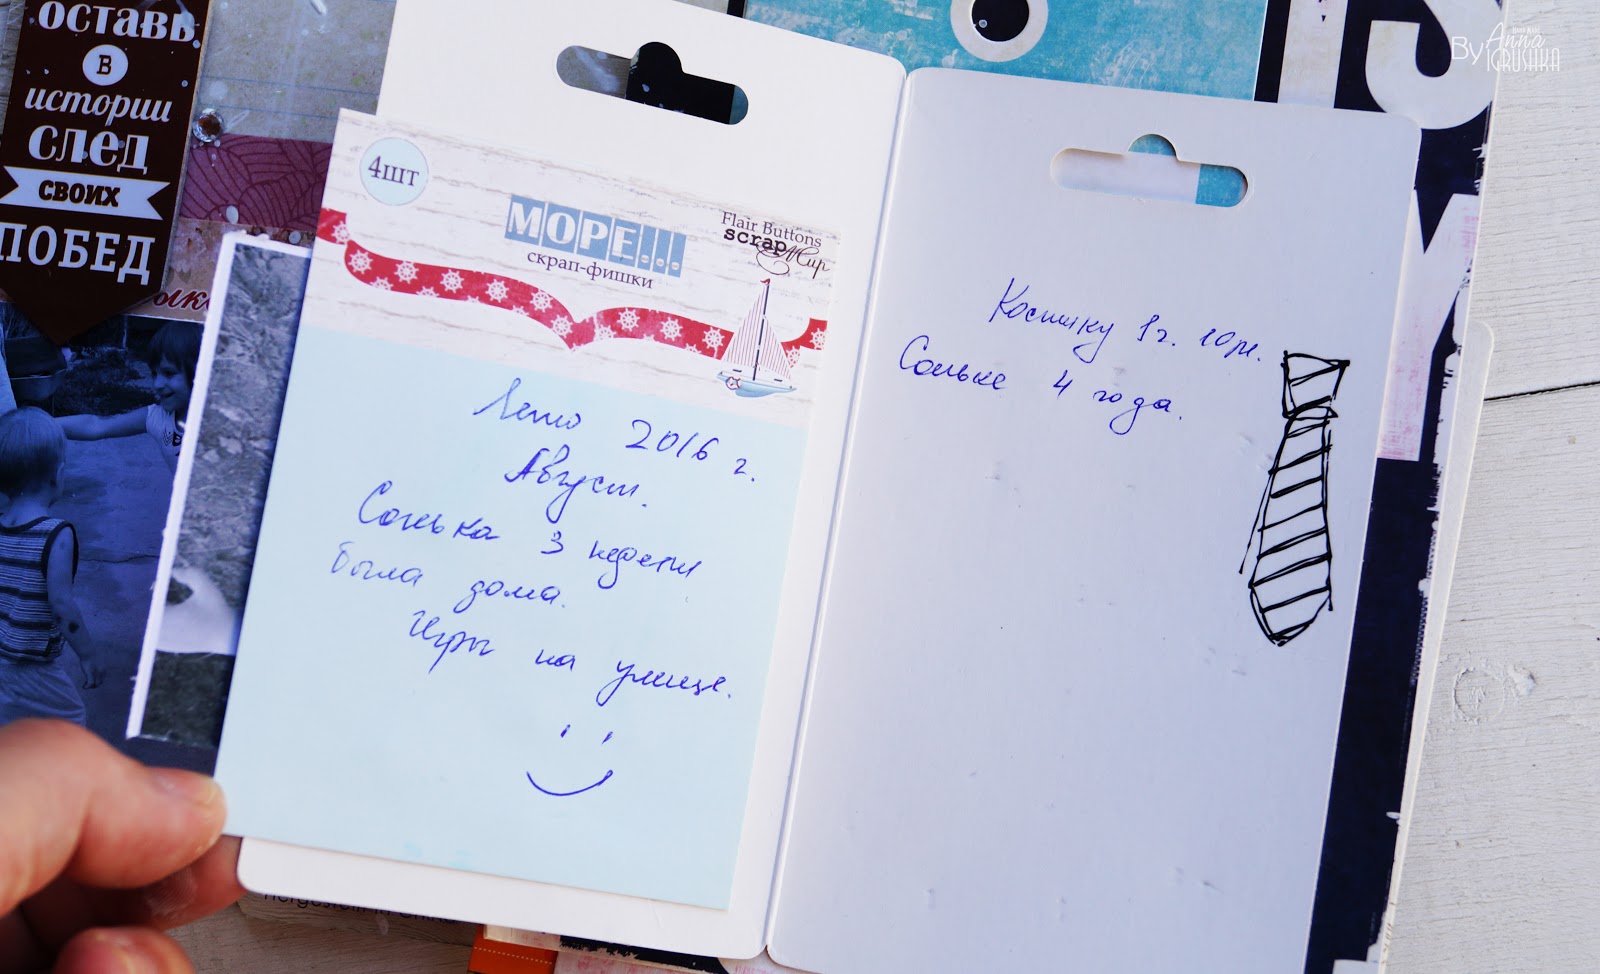 оставь
в
истории
след
своих
ПОБЕД
4шт
МОРЕ...
скрап-фишки
Flair Buttons
scrapМир
Лето 2016 г.
Август.
Сонька 3 недели
была дома.
Игры на улице.
Костику 1г. 10м.
Соньке 4 года.
By Anna
IGRUSHKA